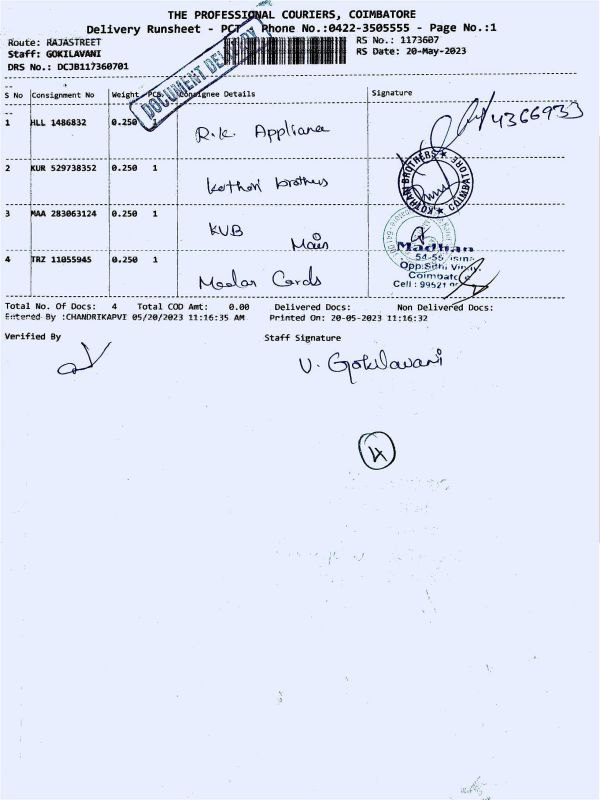 THE PROFESSIONAL COURIERS, COIMBATORE
Delivery Runsheet - PCT Phone No.:0422-3505555 - Page No.:1
Route: RAJASTREET
RS No.: 1173607
Staff: GOKILAVANI
RS Date: 20-May-2023
DRS No.: DCJB117360701
DOCUMENT DELIVERY
S No Consignment No Weight PCS Consignee Details Signature
1 HLL 1486832 0.250 1 R.K. Appliance 4366933
2 KUR 529738352 0.250 1 Kothari brothers
KOTHARI BROTHERS ★ COIMBATORE ★
3 MAA 283063124 0.250 1 KVB Main
4 TRZ 11055945 0.250 1 Cards
Madhan
54-56,
Opp:Sithi
Coimbato
Cell : 99521
Total No. Of Docs: 4 Total COD Amt: 0.00 Delivered Docs: Non Delivered Docs:
Entered By :CHANDRIKAPVE 05/20/2023 11:16:35 AM Printed On: 20-05-2023 11:16:32
Verified By Staff Signature
V. Gokilavani
4